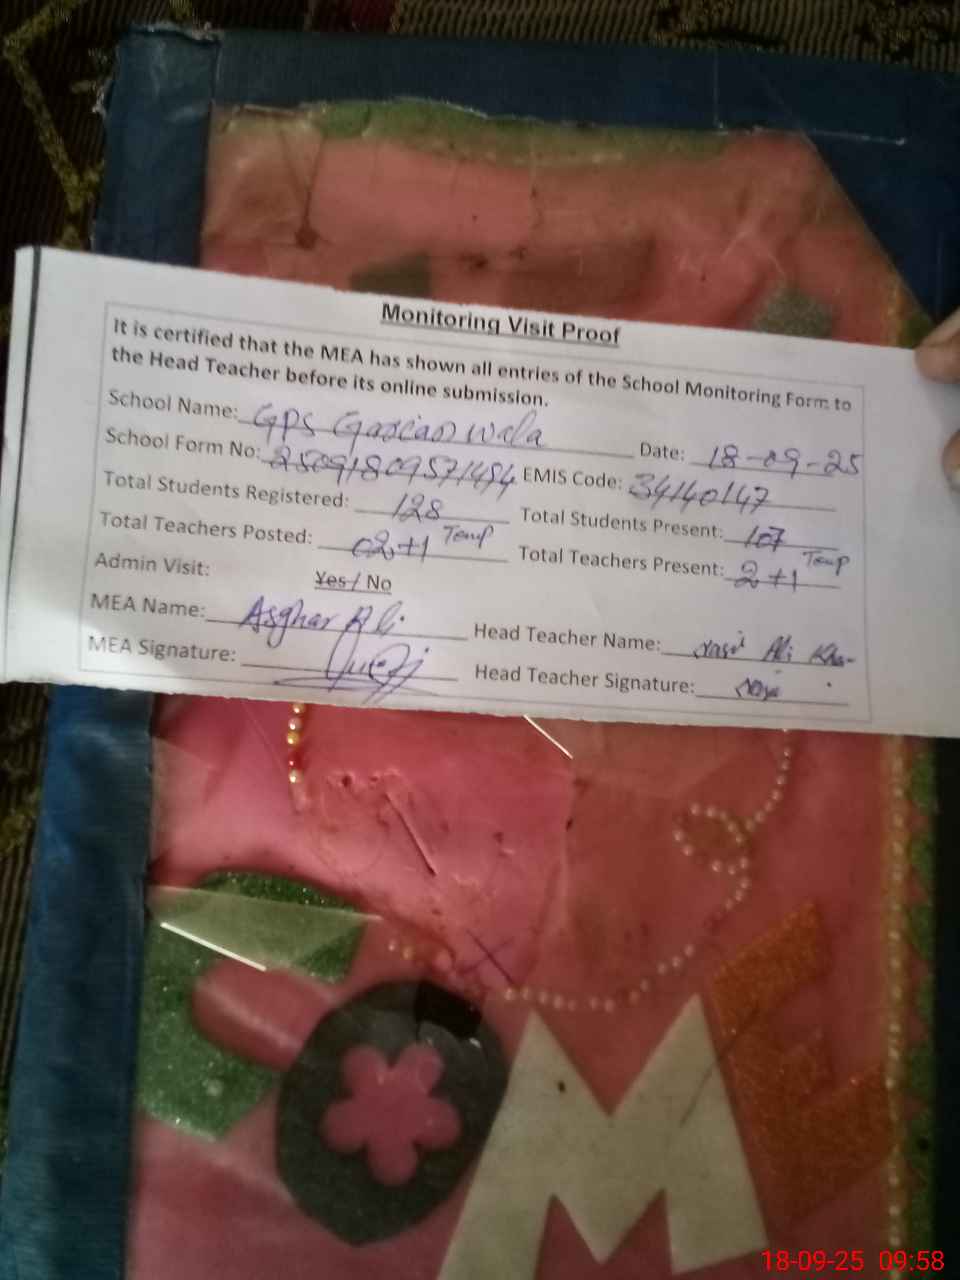 Monitoring Visit Proof
It is certified that the MEA has shown all entries of the School Monitoring Form to
the Head Teacher before its online submission.
School Name: GPS Date: 18-09-25
School Form No: EMIS Code: 34140147
Total Students Registered: 128 Total Students Present: 107
Total Teachers Posted: 02+1 Temp Total Teachers Present: 2+1 Temp
Admin Visit: Yes / No
MEA Name: Asghar Ali Head Teacher Name: Ali
MEA Signature: Head Teacher Signature:
M
18-09-25 09:58